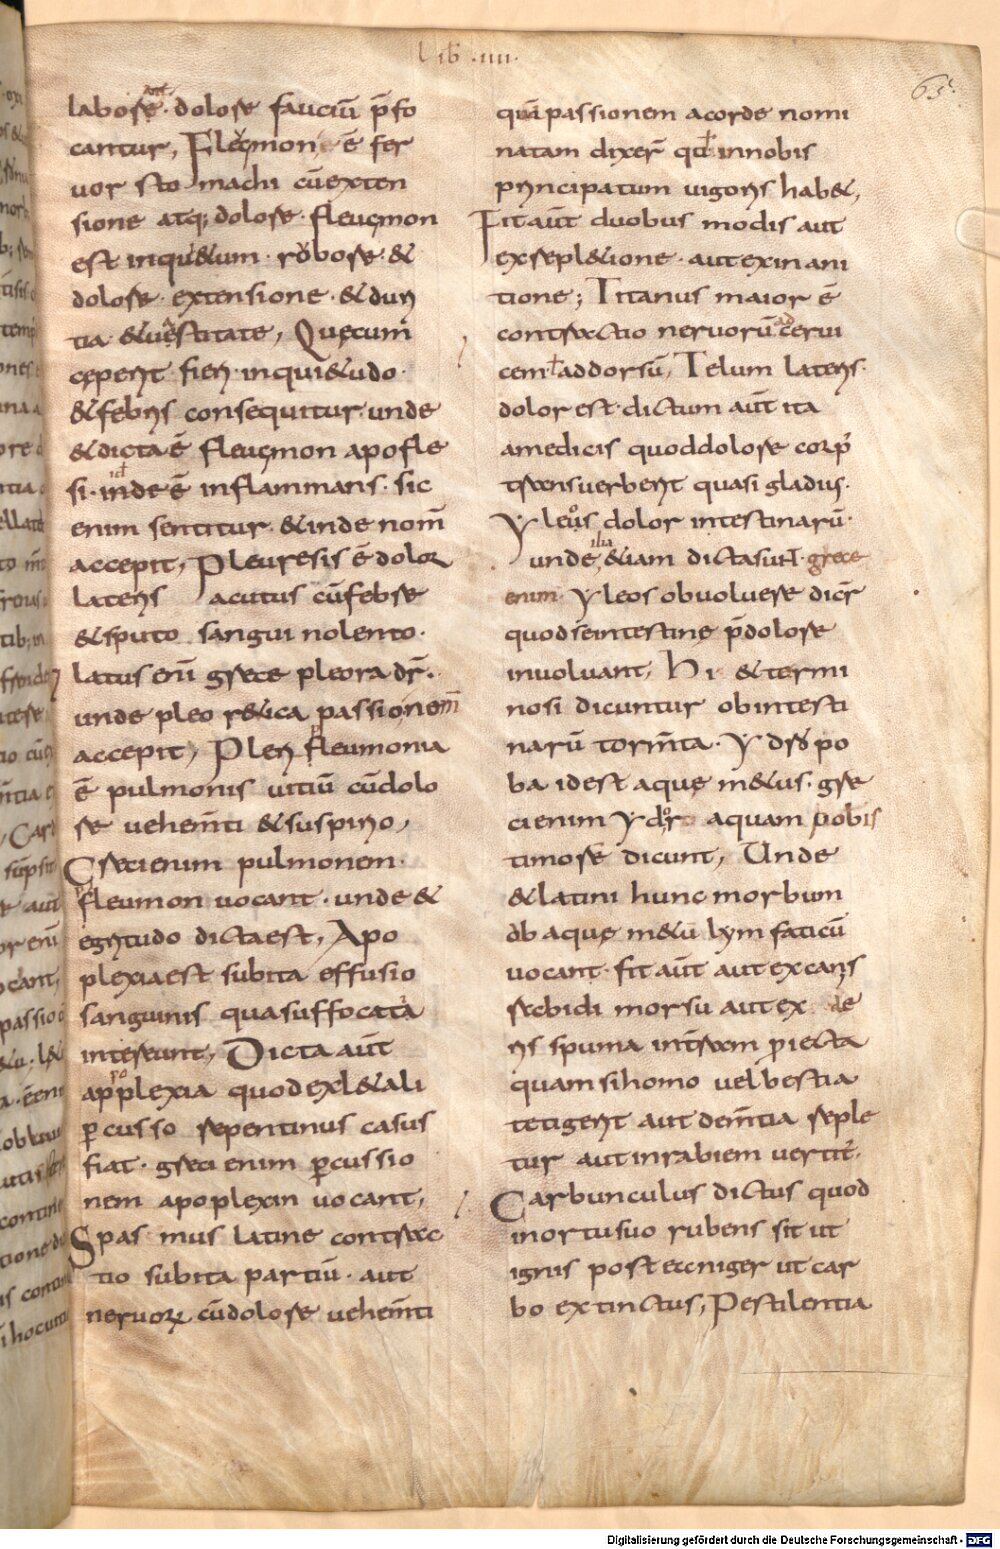 Lib .IIII.
65
labore. dolore fauciū p̄fo
cantur, Fleǫmon ē fer
uor stomachi cū exten
sione atq; dolore. fleuęmon
est inqui&um. robore. &
dolore. extensione. & duri
tia & uastitate, Quęcum
cęperit fieri inqui&udo.
& febris consequitur. unde
& dicta ē fleuęmon apofle
si. inde ē inflammans. sic
enim sentitur. & inde nom̄
accepit, Pleuresis ē dolor
lateris acutus cū febre
& sputo sanguinolento.
latus enī grece pleora dr̄.
unde pleor&ica passionem̄
accepit, Pleri fleumonia
ē pulmonis uitiū cū dolo
re uehem̄ti & suspirio,
Greci enim pulmonem.
fleumon uocant. unde &
egritudo dicta est, Apo
plexia est subita effusio
sanguinis qua suffocati
intereunt, Dicta aūt
apoplexia quod ex l&ali
ꝑcusso repentinus casus
fiat. greci enim ꝑcussio
nem apoplexin uocant,
Spasmus latine contrac
tio subita partiū. aut
neruoꝝ cū dolore uehem̄ti
quā passionem a corde nomi
natam dixer̄ qd̄ in nobis
principatum uigoris hab&,
Fit aūt duobus modis aut
ex repl&ione. aut ex inani
tione; Titanus maior ē
contractio neruorū ad cerui
cem ł ad dorsū, Telum lateris.
dolor est. dictum aūt ita
a medicis quod dolore corp̄
transuerberit quasi gladius.
Yleos dolor intestinarū.
unde ilia &iam dicta sunt. grece
enim. Yleos obuoluere dicr̄
quod se intestinę p̄ dolore
inuoluant, Hi & termi
nosi dicuntur ob intesti
narū torm̄ta. Ydro po
ba id est aquę m&us. gre
ci enim Ydor aquam pobis
timore dicunt, Unde
& latini hunc morbum
ab aquę m&ū lymfaticū
uocant. fit aūt aut ex canis
rabidi morsu aut ex ae
ris spuma in t̄ram ꝓiecta
quam si homo uel bestia
tetigerit aut dem̄tia reple
tur aut in rabiem uertit̄.
Carbunculus dictus quod
in ortu suo rubens sit ut
ignis postea niger ut car
bo extinctus, Pestilentia
Digitalisierung gefördert durch die Deutsche Forschungsgemeinschaft - DFG